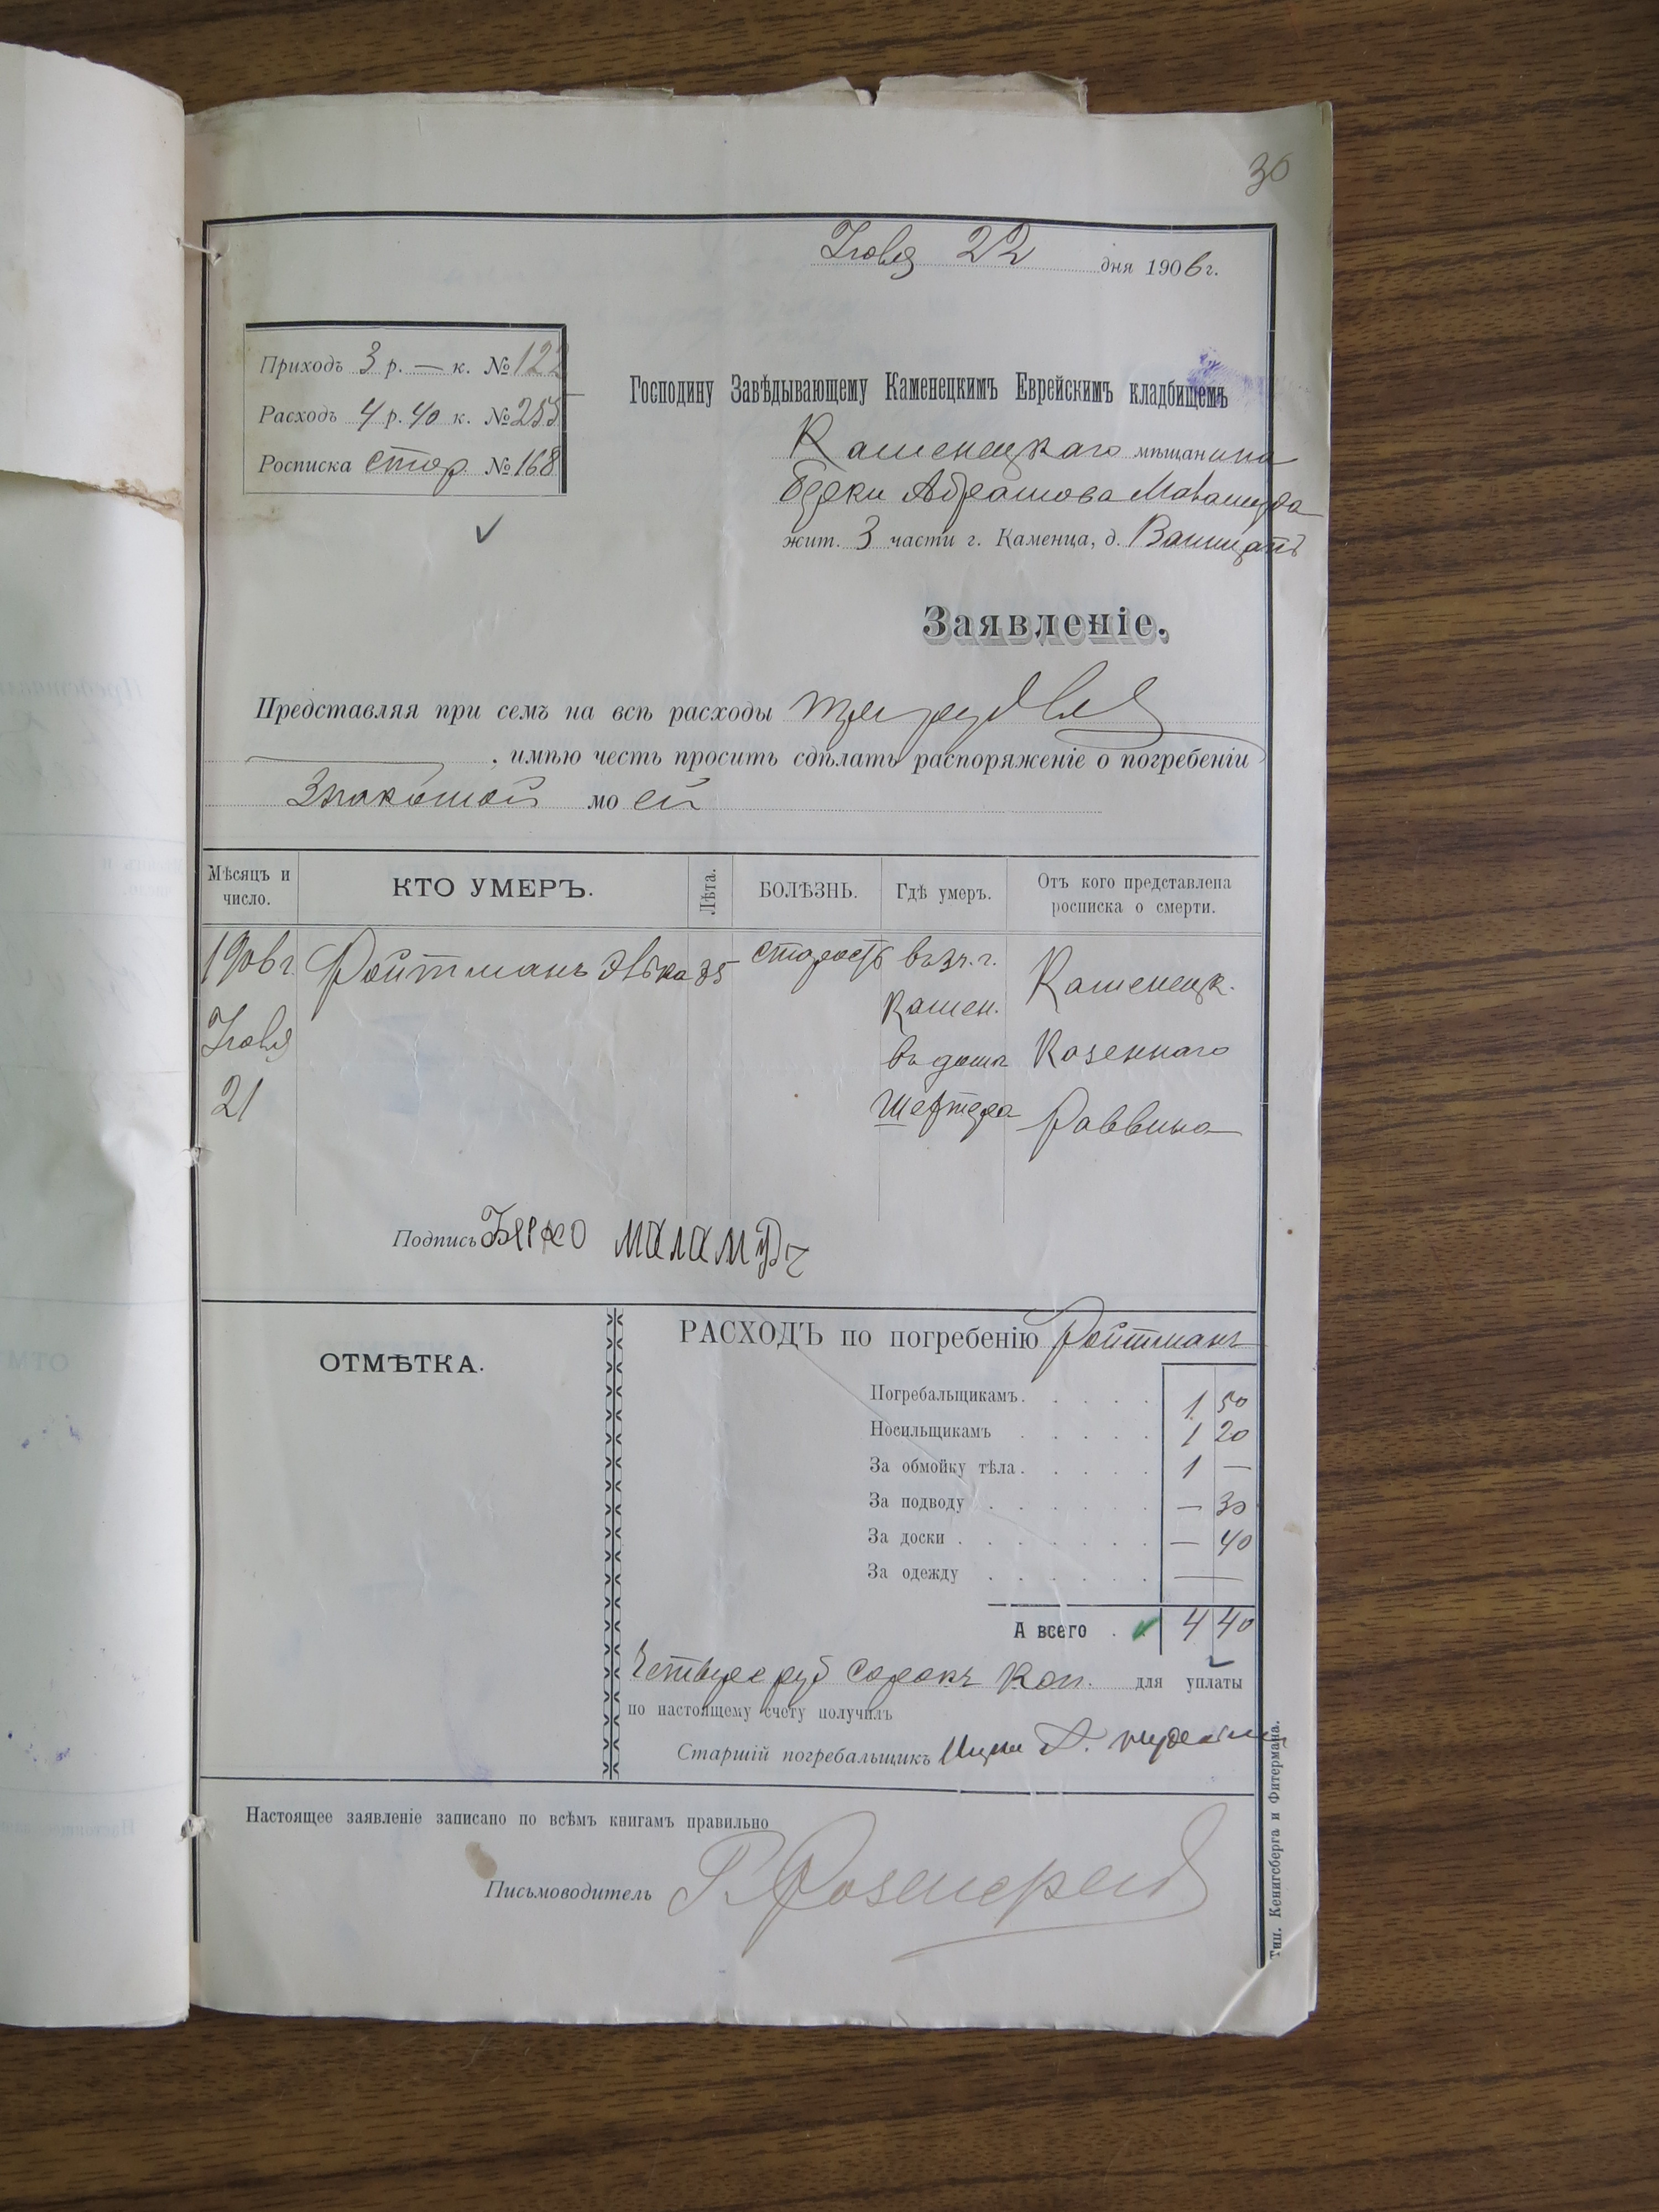 30
Іюля 22 дня 1906 г.
Приходъ 3 р. — к. № 122
Расходъ 4 р. 40 к. № 255
Росписка стор. № 168
Господину Завѣдывающему Каменецкимъ Еврейскимъ кладбищемъ
Каменецкаго мѣщанина
Абрамова Маламуда
жит. 3 части г. Каменца, д.
Заявленіе.
Представляя при семъ на всѣ расходы три рубля
, имѣю честь просить сдѣлать распоряженіе о погребеніи
Знакомой моей
Мѣсяцъ и число.
КТО УМЕРЪ.
Лѣта.
БОЛѢЗНЬ.
Гдѣ умеръ.
Отъ кого представлена росписка о смерти.
1906 г. Ройтманъ 85 старость въ 3 ч. г. Каменецк.
Іюля Камен. Казеннаго
21 въ домѣ Раввина
Подпись Маламудъ
ОТМѢТКА.
РАСХОДЪ по погребенію Ройтманъ
Погребальщикамъ. 1 50
Носильщикамъ 1 20
За обмойку тѣла. 1 —
За подводу — 30
За доски — 40
За одежду —
А всего 4 40
Четыре руб сорокъ коп. для уплаты
по настоящему счету получилъ
Старшій погребальщикъ
Настоящее заявленіе записано по всѣмъ книгамъ правильно
Письмоводитель
Тип. Кенигсберга и Фитермана.